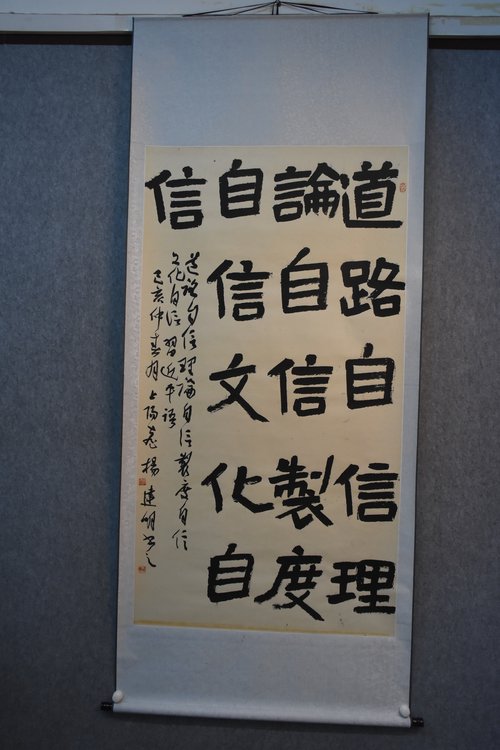 道路自信理
論自信製度
自信文化自
信
道路自信理論自信製度自信
文化自信習近平語
己亥仲春月上陽臺楊建明書之